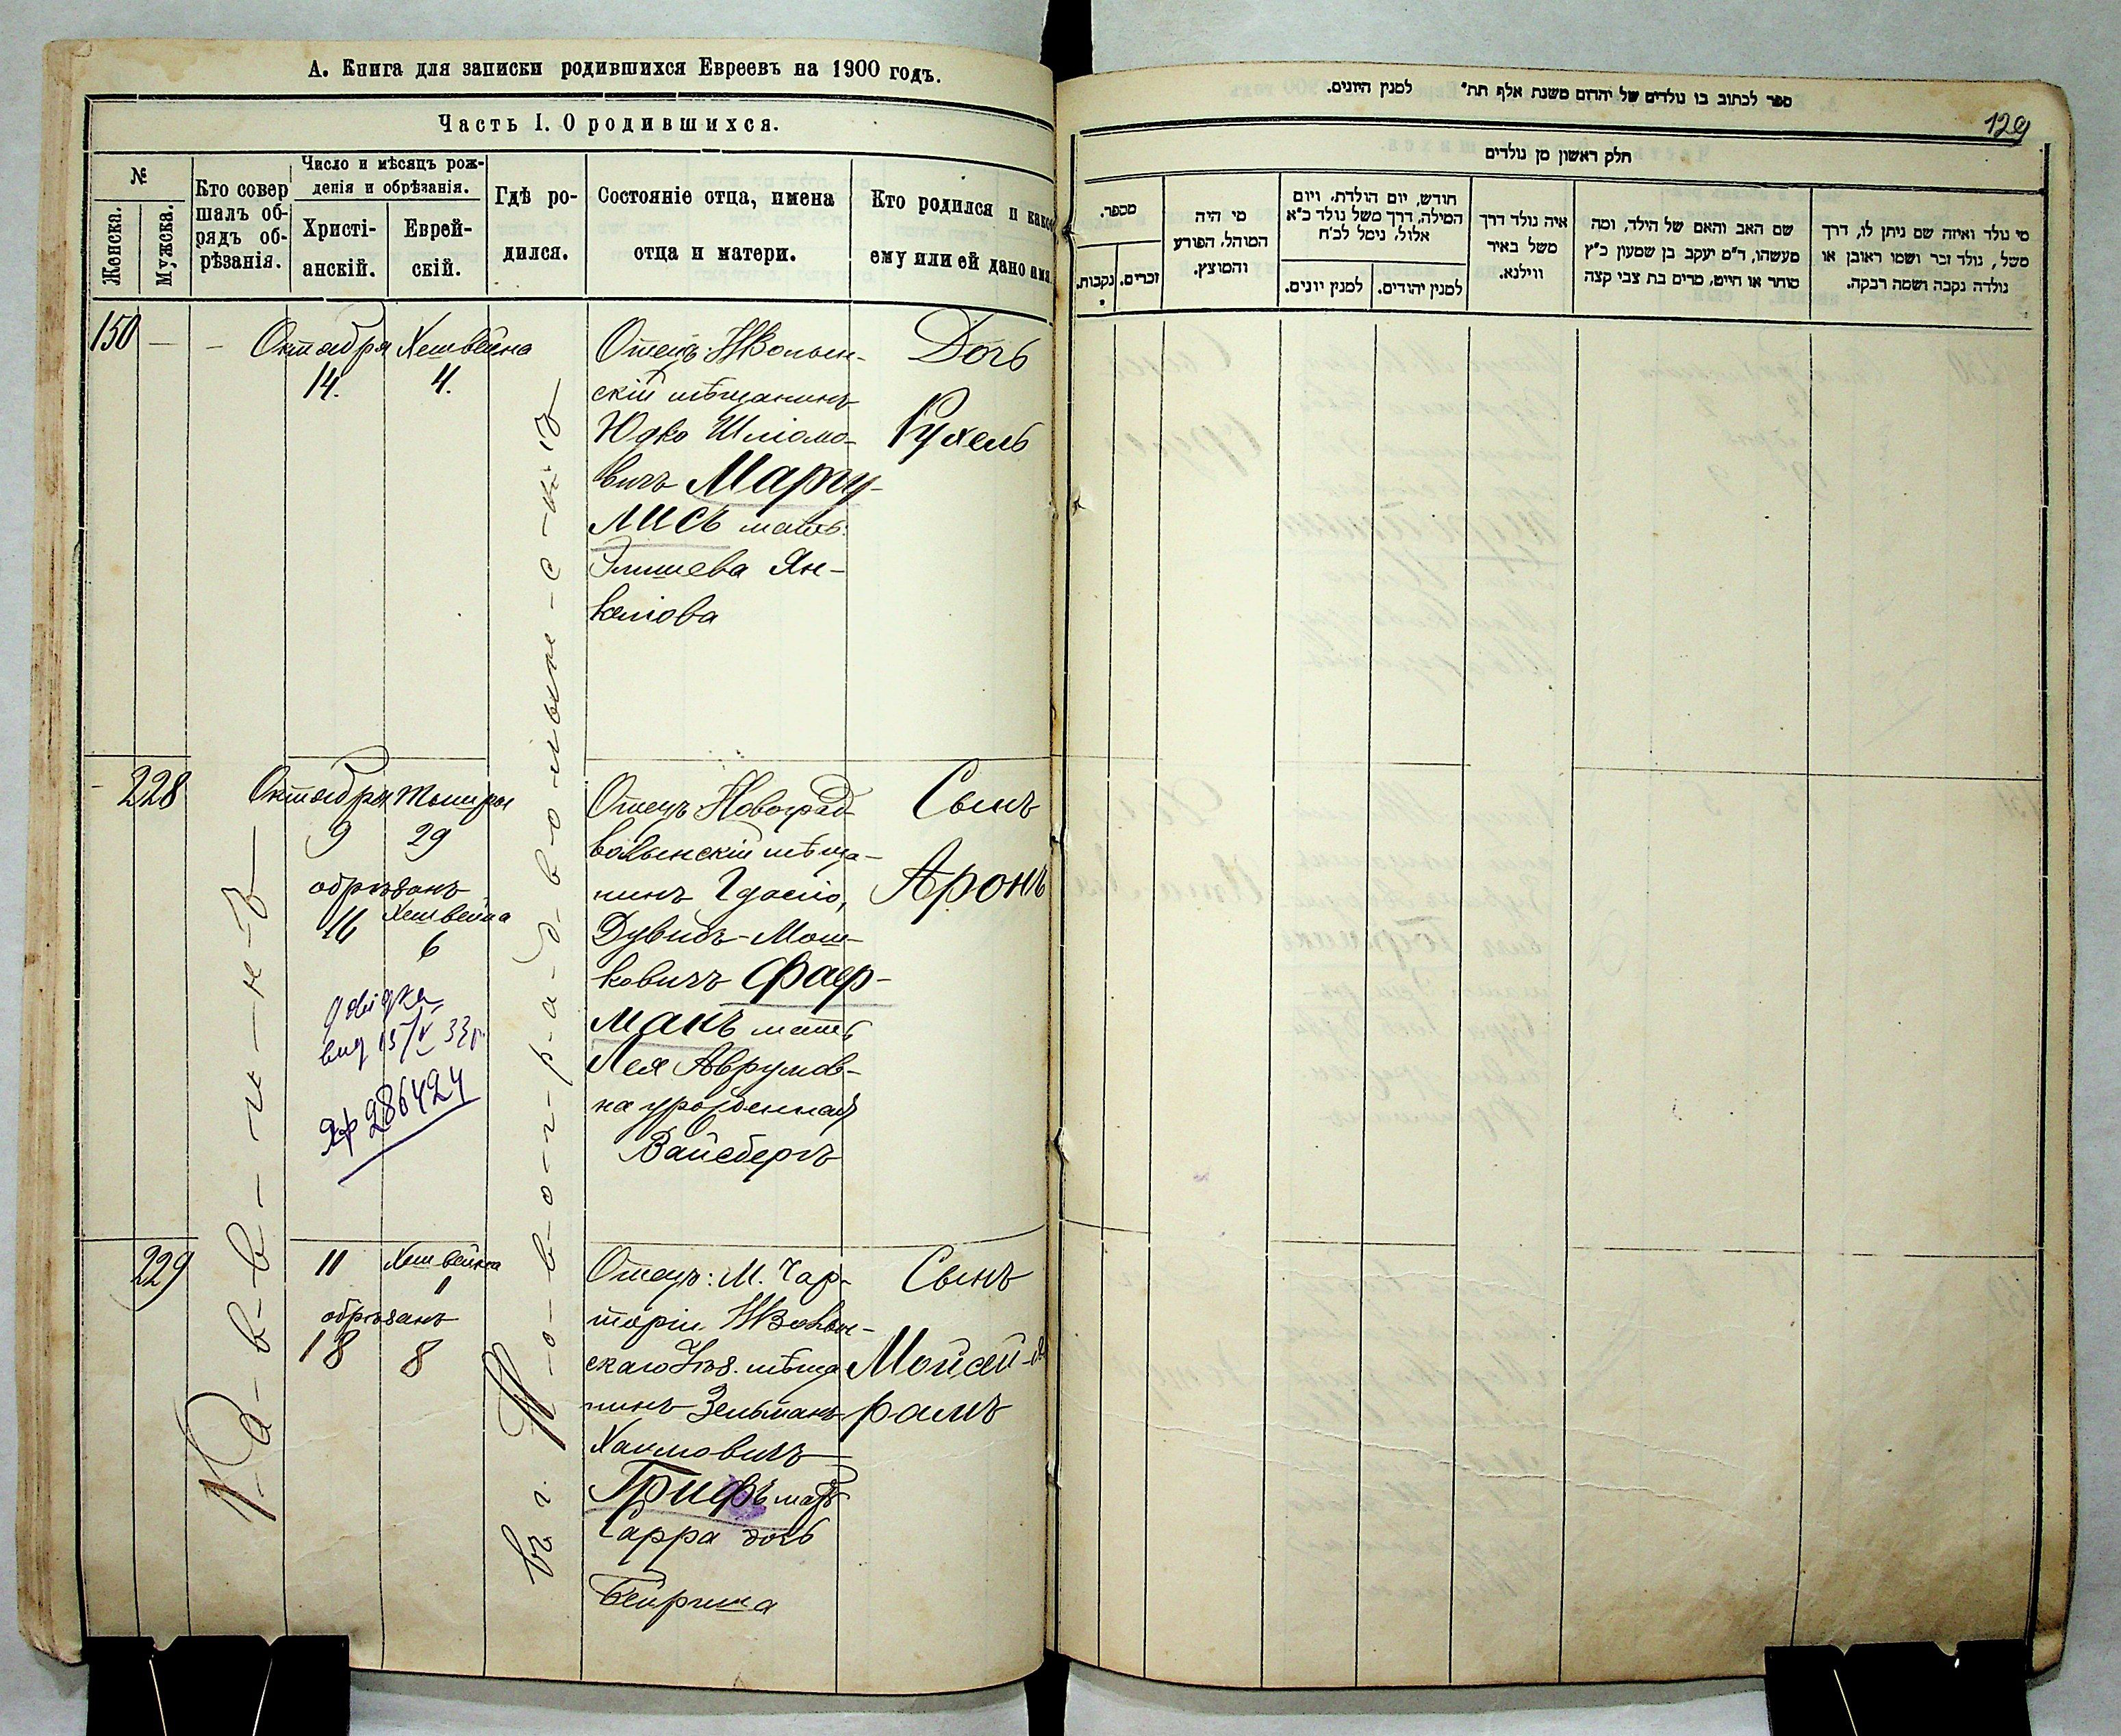 А. Книга для записки родившихся Евреевъ на 1900 годъ.
Часть I. О родившихся.
№
Женска.
Мужска.
Кто совер
шалъ об-
рядъ об-
рѣзанія.
Число и мѣсяцъ рож-
денія и обрѣзанія.
Христі-
анскій.
Еврей-
скій.
Гдѣ ро-
дился.
Состояніе отца, имена
отца и матери.
Кто родился и какое
ему или ей дано имя.
150 — —
Октября Хешвейна
14. 4.
Отецъ НВолын-
скій мѣщанинъ
Юдко Шліомо-
вичъ Маргу-
лисъ мать:
Элишева Ян-
келіова
Дочь
Рухель
- 228
Октября Тишри
9 29
обрѣзанъ
16 Хешвейна
6
вид 15/V 33 р.
286424
Отецъ Новоград-
волынскій мѣща-
нинъ Гдасіо,
Дувидъ-Мош-
ковичъ Фаер-
манъ мать
Лея Аврумов-
на урожденная
Вайсбергъ
Сынъ
Аронъ
229
11 Хешвейна
1
обрѣзанъ
18 8
Отецъ: М. Чар-
торіи НВолын-
скаго Уѣз. мѣща
нинъ Зельманъ
Хаимовичъ
Грифъ мать
Сарра дочь
Бейриша
Сынъ
Мойсей-А
рамъ
Р-а-в-в-и-н-ъ
Въ г. Н-о-в-о-г-р-а-д-в-о-лын-с-к-ѣ
ספר לכתוב בו נולדים של יהדום משנת אלף תת״ למנין היונים.
129
חלק ראשון מן נולדים
מספר.
נקבות.
זכרים.
מי היה
המוהל, הפורע
והמוצץ.
חודש, יום הולדת, ויום
המילה, דרך משל נולד כ״א
אלול, נימל לכ״ח
למנין יונים.
למנין יהודים.
איה נולד דרך
משל באיר
ווילנא.
שם האב והאם של הילד, ומה
מעשהו, ד״מ יעקב בן שמעון כ״ץ
סוחר או חייט, מרים בת צבי קצה
מי נולד ואיזה שם ניתן לו, דרך
משל, נולד זכר ושמו ראובן או
נולדה נקבה ושמה רבקה.